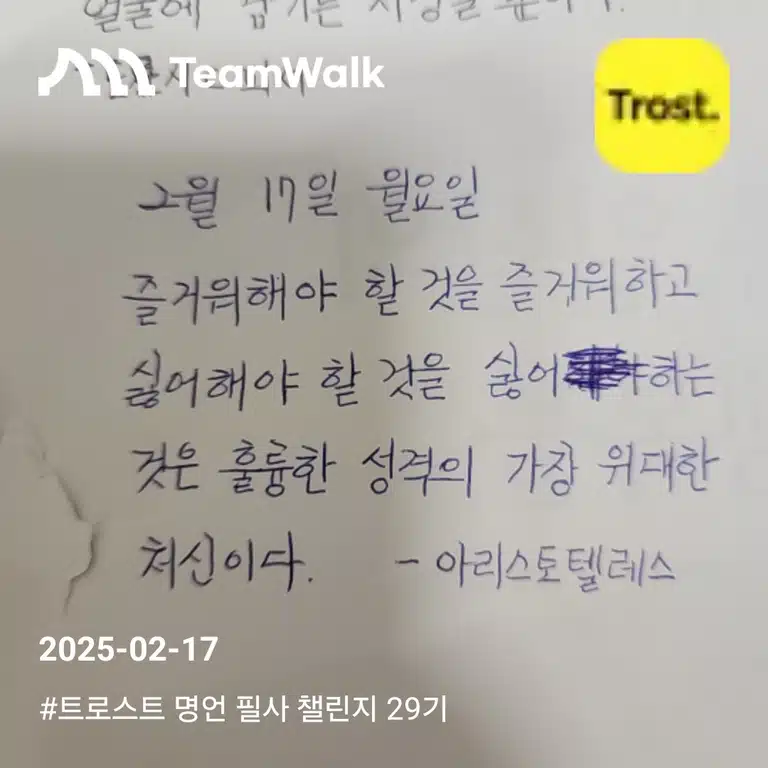 얼굴에
TeamWalk
Trost.
2월 17일 월요일
즐거워해야 할 것을 즐거워하고
싫어해야 할 것을 싫어하는
것은 훌륭한 성격의 가장 위대한
처신이다. - 아리스토텔레스
2025-02-17
#트로스트 명언 필사 챌린지 29기